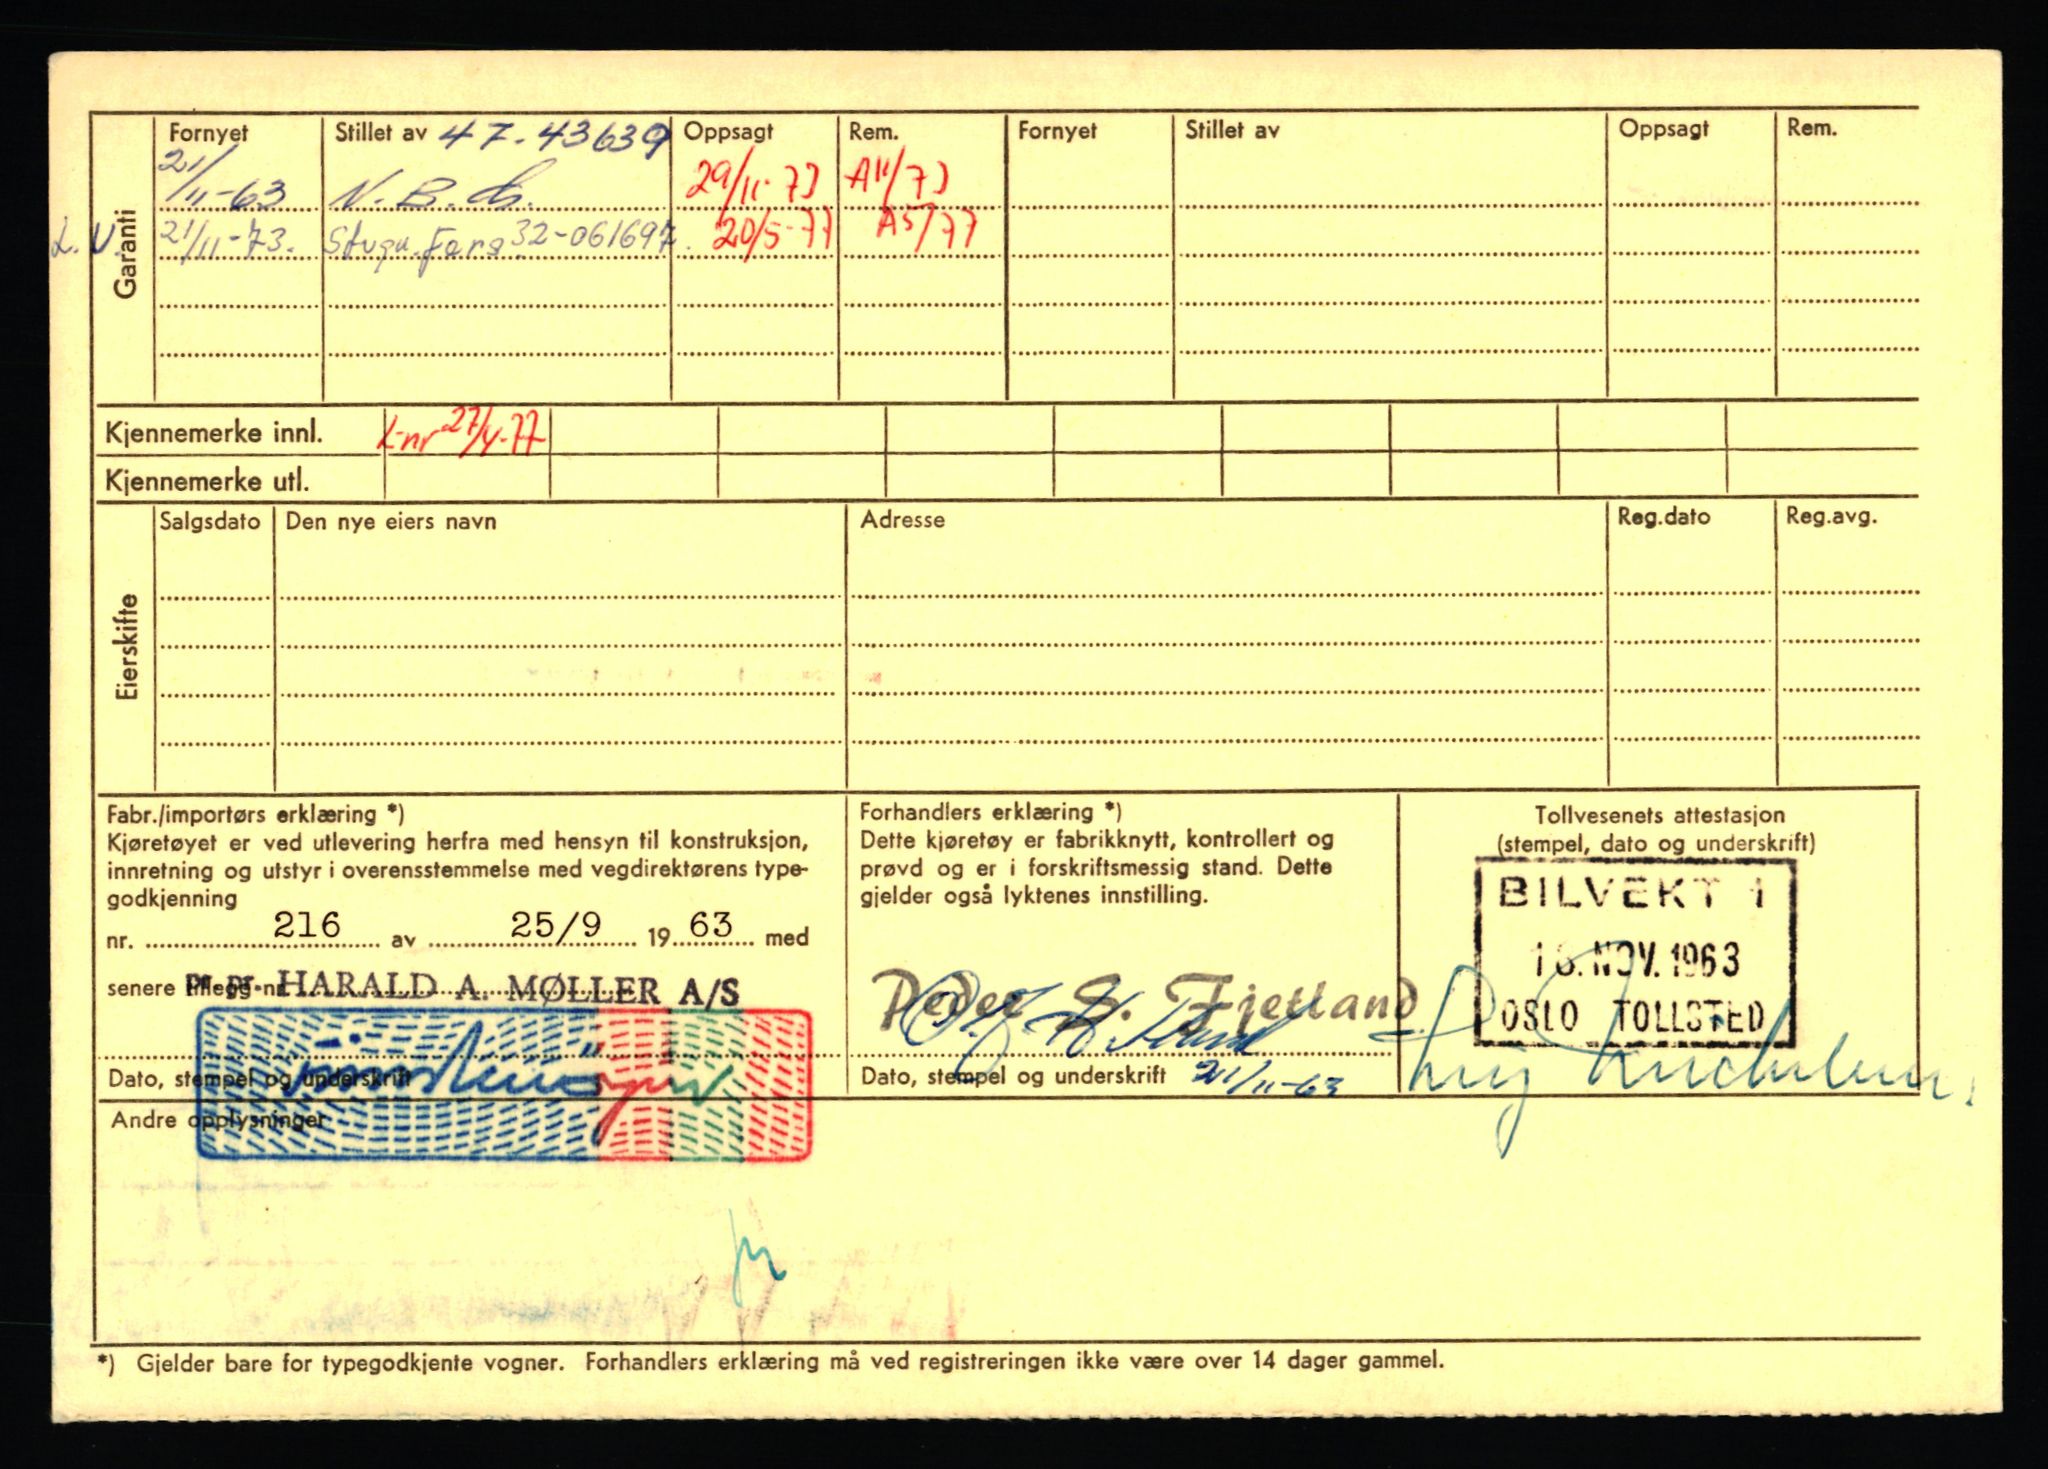 Garanti
Fornyet Stillet av 47-43639 Oppsagt Rem. Fornyet Stillet av Oppsagt Rem.
21/11-63 29/11-73 A11/73
L.V. 21/11-73. 32-061697. 20/5-77 A5/77
Kjennemerke innl. 27/4-77
Kjennemerke utl.
Eierskifte
Salgsdato Den nye eiers navn Adresse Reg.dato Reg.avg.
Fabr./importørs erklæring *)
Kjøretøyet er ved utlevering herfra med hensyn til konstruksjon,
innretning og utstyr i overensstemmelse med vegdirektørens type-
godkjenning
nr. 216 av 25/9 1963 med
senere tillegg nr.
Pr. pr. HARALD A. MØLLER A/S
Dato, stempel og underskrift
Forhandlers erklæring *)
Dette kjøretøy er fabrikknytt, kontrollert og
prøvd og er i forskriftsmessig stand. Dette
gjelder også lyktenes innstilling.
Peder S. Fjetland
Dato, stempel og underskrift 21/11-63
Tollvesenets attestasjon
(stempel, dato og underskrift)
BILVEKT 1
NOV. 1963
OSLO TOLLSTED
Andre opplysninger
*) Gjelder bare for typegodkjente vogner. Forhandlers erklæring må ved registreringen ikke være over 14 dager gammel.